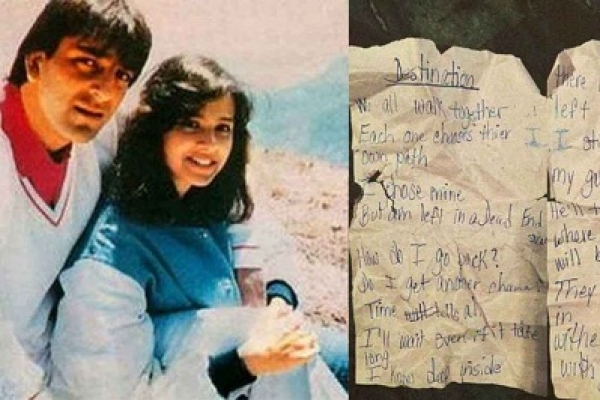 Destination
We all walk together
Each one choses thier
own path
I chose mine
But am left in a Dead End
How do I go back?
Do I get another
Time tells al
I'll wait even if it take
long
I know deep inside
there
left
I. I
my
He'll
where
will
They
in
with